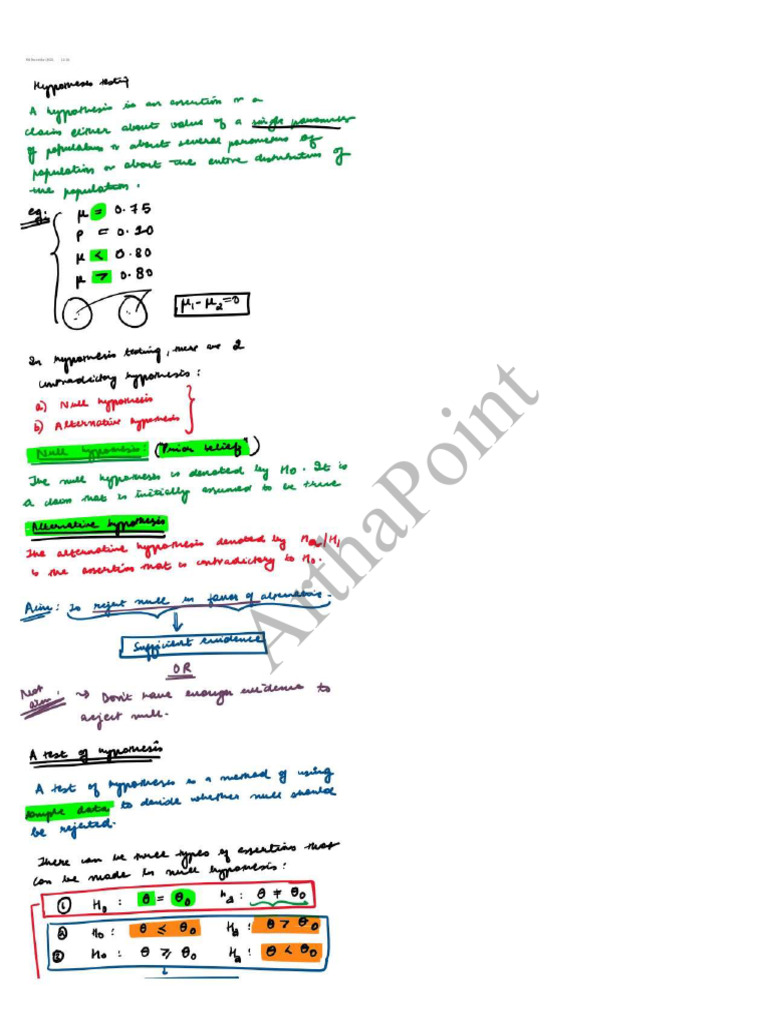 Hypothesis testing
A hypothesis is an assertion or a
claim either about value of a single parameter
of population or about several parameters of
population or about the entire distribution of
the population.
eg:
μ = 0.75
P = 0.10
μ < 0.80
μ > 0.80
μ₁ - μ₂ = 0
In hypothesis testing, there are 2
contradictory hypothesis:
a) Null hypothesis
b) Alternative hypothesis
Null hypothesis: ("Prior belief")
The null hypothesis is denoted by H0. It is
a claim that is initially assumed to be true
Alternative hypothesis
The alternative hypothesis denoted by Ha/H1
is the assertion that is contradictory to H0.
Aim: To reject null in favor of alternative.
Sufficient evidence
OR
Next → Don't have enough evidence to
reject null.
A test of hypothesis
A test of hypothesis is a method of using
sample data to decide whether null should
be rejected.
There can be types of assertion that
can be made in null hypothesis:
① H0 : θ = θ0 Ha : θ ≠ θ0
② H0 : θ ≤ θ0 Ha : θ > θ0
③ H0 : θ ≥ θ0 Ha : θ < θ0
ArthaPoint